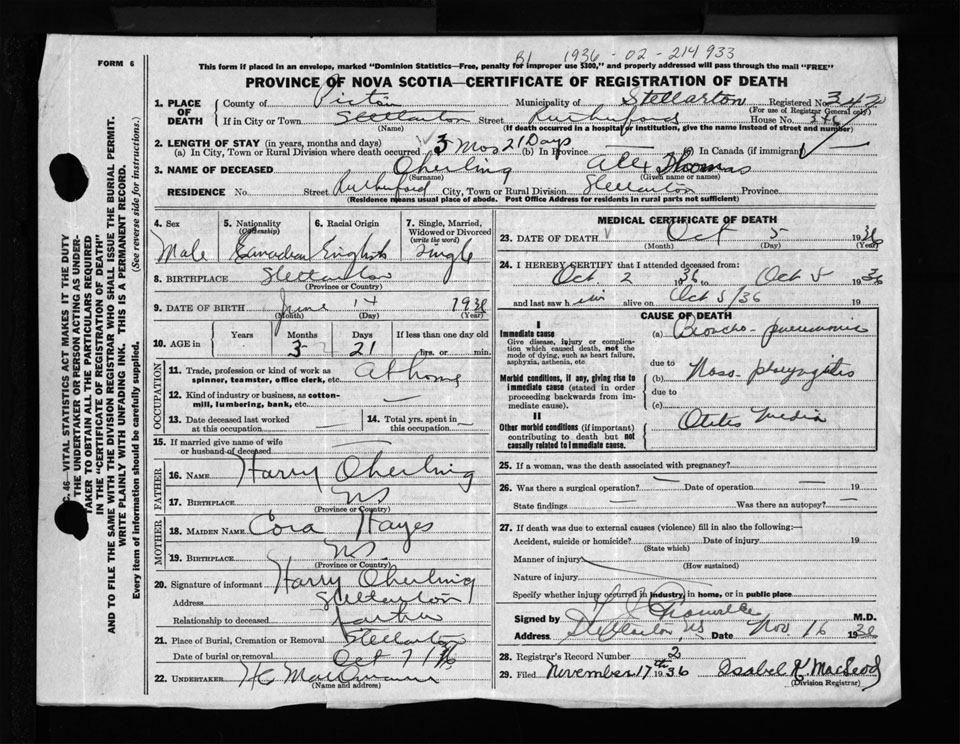 B1 1936 - 02 - 214 933
FORM 6
This form if placed in an envelope, marked "Dominion Statistics—Free, penalty for improper use $300," and properly addressed will pass through the mail "FREE"
PROVINCE OF NOVA SCOTIA—CERTIFICATE OF REGISTRATION OF DEATH
C. 46—VITAL STATISTICS ACT MAKES IT THE DUTY
THE UNDERTAKER OR PERSON ACTING AS UNDER-
TAKER TO OBTAIN ALL THE PARTICULARS REQUIRED
IN THE "CERTIFICATE OF REGISTRATION OF DEATH"
AND TO FILE THE SAME WITH THE DIVISION REGISTRAR WHO SHALL ISSUE THE BURIAL PERMIT.
WRITE PLAINLY WITH UNFADING INK. THIS IS A PERMANENT RECORD.
Every item of information should be carefully supplied. (See reverse side for instructions.)
1. PLACE OF DEATH County of Pictou Municipality of Stellarton Registered No. 342
(For use of Registrar General only)
If in City or Town Stellarton Street Rutherford House No. 346
(Name) (If death occurred in a hospital or institution, give the name instead of street and number)
2. LENGTH OF STAY (in years, months and days)
(a) In City, Town or Rural Division where death occurred 3 Mos 21 Days (b) In Province — (c) In Canada (if immigrant) —
3. NAME OF DECEASED Oherling Alex Thomas
(Surname) (Given name or names)
RESIDENCE No. Street Rutherford City, Town or Rural Division Stellarton Province
(Residence means usual place of abode. Post Office Address for residents in rural parts not sufficient)
4. Sex Male
5. Nationality (Citizenship) Canadian
6. Racial Origin English
7. Single, Married, Widowed or Divorced (write the word) Single
8. BIRTHPLACE Stellarton
(Province or Country)
9. DATE OF BIRTH June 14 1936
(Month) (Day) (Year)
10. AGE in Years Months 3 Days 21 If less than one day old
hrs. or min.
OCCUPATION
11. Trade, profession or kind of work as spinner, teamster, office clerk, etc. At home
12. Kind of industry or business, as cotton-mill, lumbering, bank, etc. —
13. Date deceased last worked at this occupation —
14. Total yrs. spent in this occupation —
15. If married give name of wife or husband of deceased —
FATHER
16. NAME Harry Oherling
17. BIRTHPLACE NS
(Province or Country)
MOTHER
18. MAIDEN NAME Cora Hayes
19. BIRTHPLACE NS
(Province or Country)
20. Signature of informant Harry Oherling
Address Stellarton
Relationship to deceased father
21. Place of Burial, Cremation or Removal Stellarton
Date of burial or removal Oct 7/36
22. UNDERTAKER
(Name and address)
MEDICAL CERTIFICATE OF DEATH
23. DATE OF DEATH Oct 5 1936
(Month) (Day) (Year)
24. I HEREBY CERTIFY that I attended deceased from:
Oct. 2 1936 Oct 5 1936
and last saw him alive on Oct 5/36 19
CAUSE OF DEATH
I
Immediate cause
Give disease, injury or complication which caused death, not the mode of dying, such as heart failure, asphyxia, asthenia, etc.
(a) Broncho-pneumonia
due to
Morbid conditions, if any, giving rise to immediate cause (stated in order proceeding backwards from immediate cause).
(b) Naso-pharyngitis
due to
(c)
II
Other morbid conditions (if important) contributing to death but not causally related to immediate cause.
Otitis media
25. If a woman, was the death associated with pregnancy?
26. Was there a surgical operation? — Date of operation — 19
State findings — Was there an autopsy? —
27. If death was due to external causes (violence) fill in also the following:—
Accident, suicide or homicide? Date of injury 19
(State which)
Manner of injury
(How sustained)
Nature of injury
Specify whether injury occurred in industry, in home, or in public place
Signed by M.D.
Address Stellarton, NS Date Nov. 16 1936
28. Registrar's Record Number 2
29. Filed November 17th 1936 Isabel K. MacLeod
(Division Registrar)